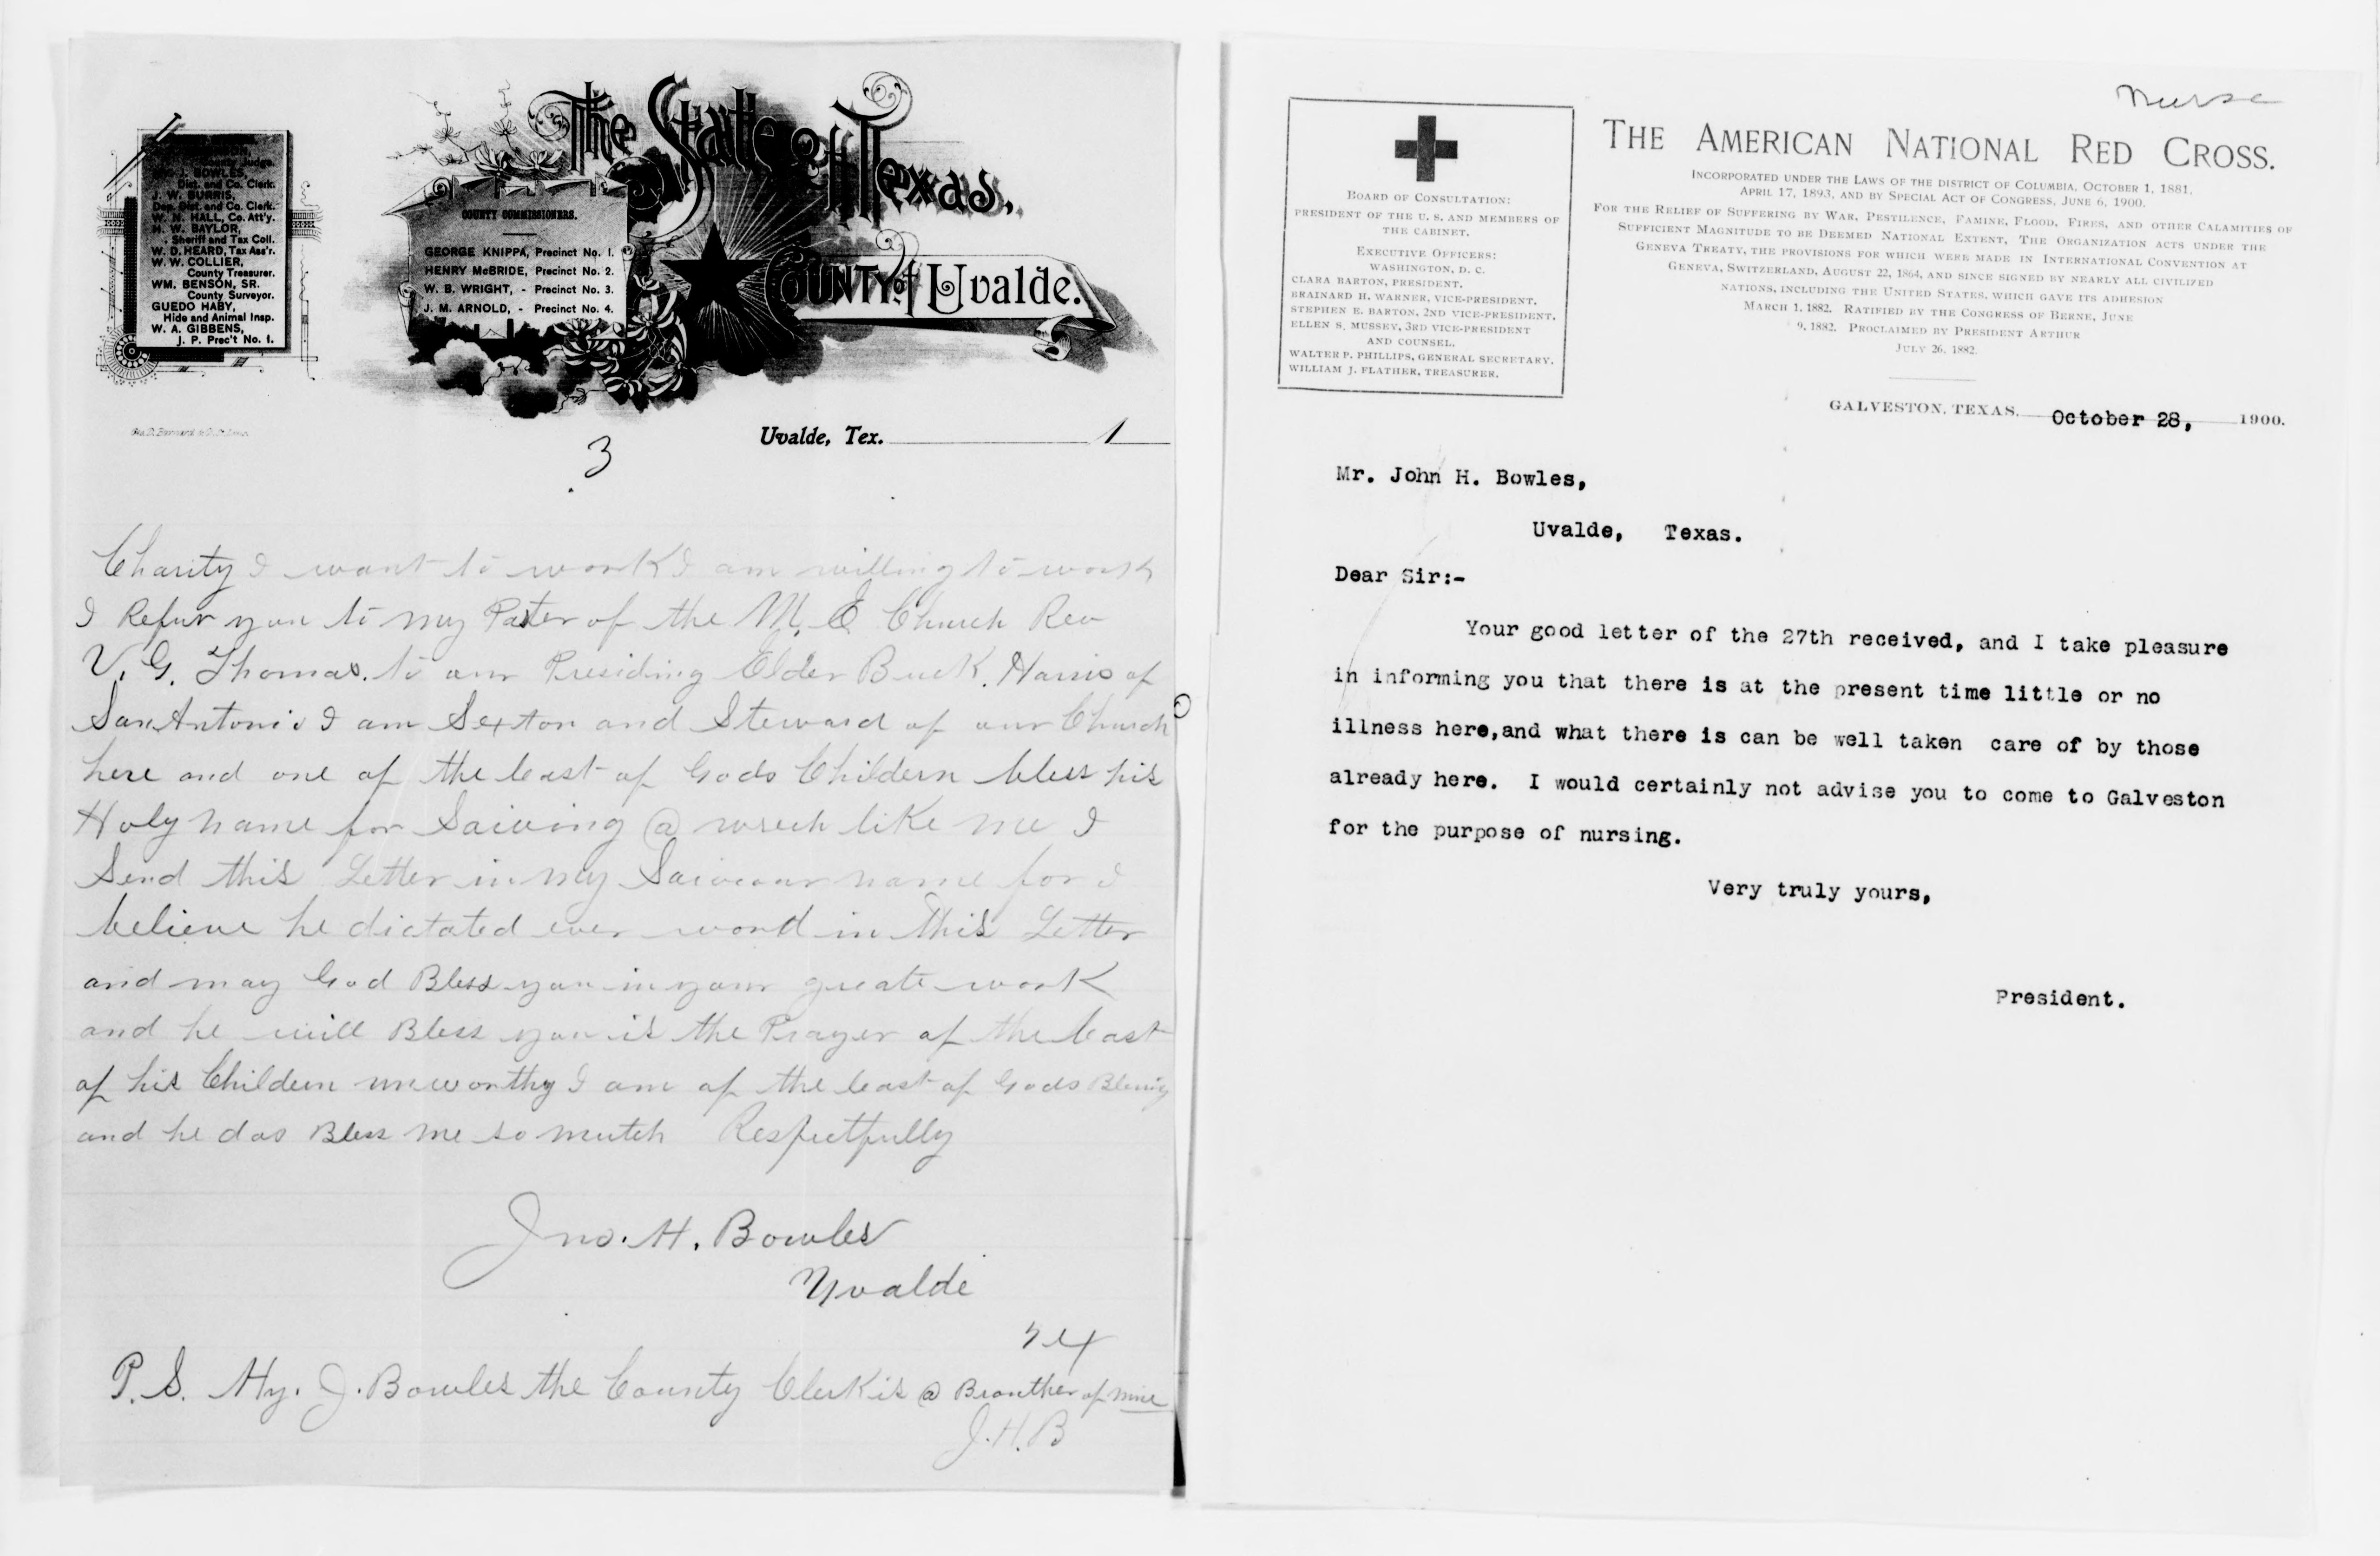 County Judge.
BOWLES,
Dist. and Co. Clerk.
J. W. BURRIS,
Dep. Dist. and Co. Clerk.
W. N. HALL, Co. Att'y.
H. W. BAYLOR,
Sheriff and Tax Coll.
W. D. HEARD, Tax Ass'r.
W. W. COLLIER,
County Treasurer.
WM. BENSON, SR.
County Surveyor.
GUEDO HABY,
Hide and Animal Insp.
W. A. GIBBENS,
J. P. Prec't No. 1.
The State of Texas,
COUNTY COMMISSIONERS.
GEORGE KNIPPA, Precinct No. 1.
HENRY McBRIDE, Precinct No. 2.
W. B. WRIGHT, - Precinct No. 3.
J. M. ARNOLD, - Precinct No. 4.
COUNTY of Uvalde.
Uvalde, Tex. 1
3
Charity I want to work I am willing to work
I Refur you to my Paster of the M. E. Church Rev
V. G. Thomas. to our Presiding Elder Buck. Harris of
San Antonio I am Sexton and Steward of our Church
here and one of the least of Gods Childern bless his
Holy name for Saiving @ wrech like me I
Send this Letter in my Saiveour name for I
believe he dictated ever word in this Letter
and may God Bless you in your greate work
and he will Bless you is the Prayer of the least
of his Childern unworthy I am of the least of Gods Blessing
and he dos Bless me so mutch Respectfully
Jno. H. Bowles
Uvalde
P.S. Hy. J. Bowles the County Clerk is @ Brouther of mine
J.H.B
Nurse
BOARD OF CONSULTATION:
PRESIDENT OF THE U. S. AND MEMBERS OF
THE CABINET.
EXECUTIVE OFFICERS:
WASHINGTON, D. C.
CLARA BARTON, PRESIDENT.
BRAINARD H. WARNER, VICE-PRESIDENT.
STEPHEN E. BARTON, 2ND VICE-PRESIDENT.
ELLEN S. MUSSEY, 3RD VICE-PRESIDENT
AND COUNSEL.
WALTER P. PHILLIPS, GENERAL SECRETARY.
WILLIAM J. FLATHER, TREASURER.
THE AMERICAN NATIONAL RED CROSS.
INCORPORATED UNDER THE LAWS OF THE DISTRICT OF COLUMBIA, OCTOBER 1, 1881,
APRIL 17, 1893, AND BY SPECIAL ACT OF CONGRESS, JUNE 6, 1900.
FOR THE RELIEF OF SUFFERING BY WAR, PESTILENCE, FAMINE, FLOOD, FIRES, AND OTHER CALAMITIES OF
SUFFICIENT MAGNITUDE TO BE DEEMED NATIONAL EXTENT, THE ORGANIZATION ACTS UNDER THE
GENEVA TREATY, THE PROVISIONS FOR WHICH WERE MADE IN INTERNATIONAL CONVENTION AT
GENEVA, SWITZERLAND, AUGUST 22, 1864, AND SINCE SIGNED BY NEARLY ALL CIVILIZED
NATIONS, INCLUDING THE UNITED STATES, WHICH GAVE ITS ADHESION
MARCH 1, 1882. RATIFIED BY THE CONGRESS OF BERNE, JUNE
9, 1882. PROCLAIMED BY PRESIDENT ARTHUR
JULY 26, 1882.
GALVESTON, TEXAS. October 28, 1900.
Mr. John H. Bowles,
Uvalde, Texas.
Dear Sir:-
Your good letter of the 27th received, and I take pleasure
in informing you that there is at the present time little or no
illness here,and what there is can be well taken care of by those
already here. I would certainly not advise you to come to Galveston
for the purpose of nursing.
Very truly yours,
President.